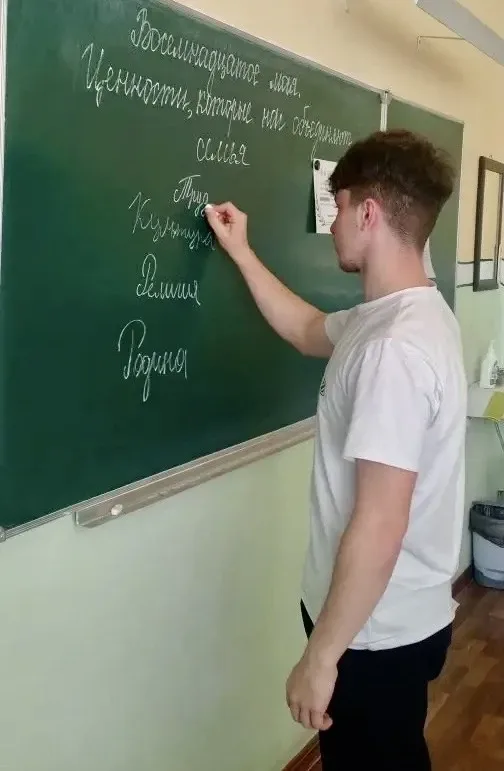 Восемнадцатое мая.
Ценности, которые нас объединяют
семья
Труд
Культура
Религия
Родина